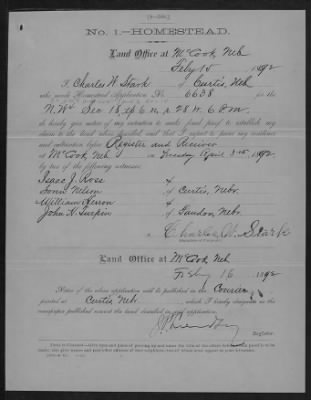 [4-348.]
No. 1.—HOMESTEAD.
Land Office at McCook, Neb
Feby 15, 1892
I, Charles W. Stark, of Curtis, Neb
who made Homestead Application No. 6638
N.W¼ Sec 18 tp 6 n. r 28 w. 6 P.M.
do hereby give notice of my intention to make final proof to establish my
claim to the land above described, and that I expect to prove my residence
and cultivation before Register and Receiver
at McCook, Neb on Tuesday April 1892
by two of the following witnesses:
Isaac J. Ross of
Nelson of Curtis, Nebr.
William of
John H. of Nebr.
Charles W. Stark
(Signature of Claimant.)
Land Office at McCook Neb
Feby 16, 1892
Notice of the above application will be published in the Courier
printed at Curtis Neb., which I hereby designate as the
newspaper published nearest the land described in said application.
Register.